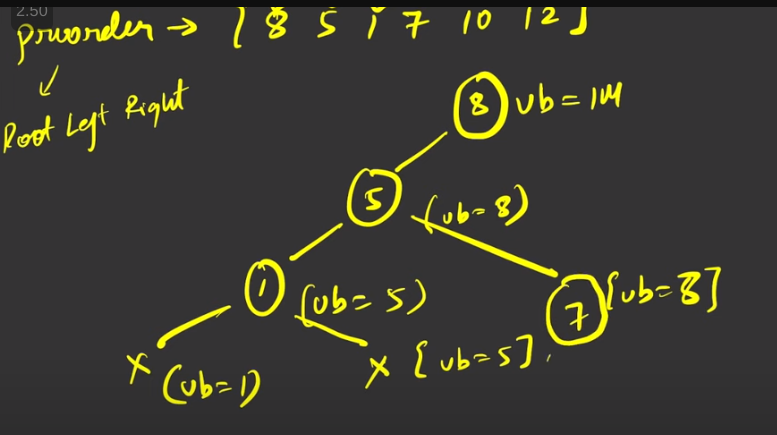 2.50
preorder → [ 8 5 1 7 10 12 ]
Root Left Right
8 ub = IM
5 (ub = 8)
1 (ub = 5)
7 [ub = 8]
x (ub = 1)
x [ub = 5]